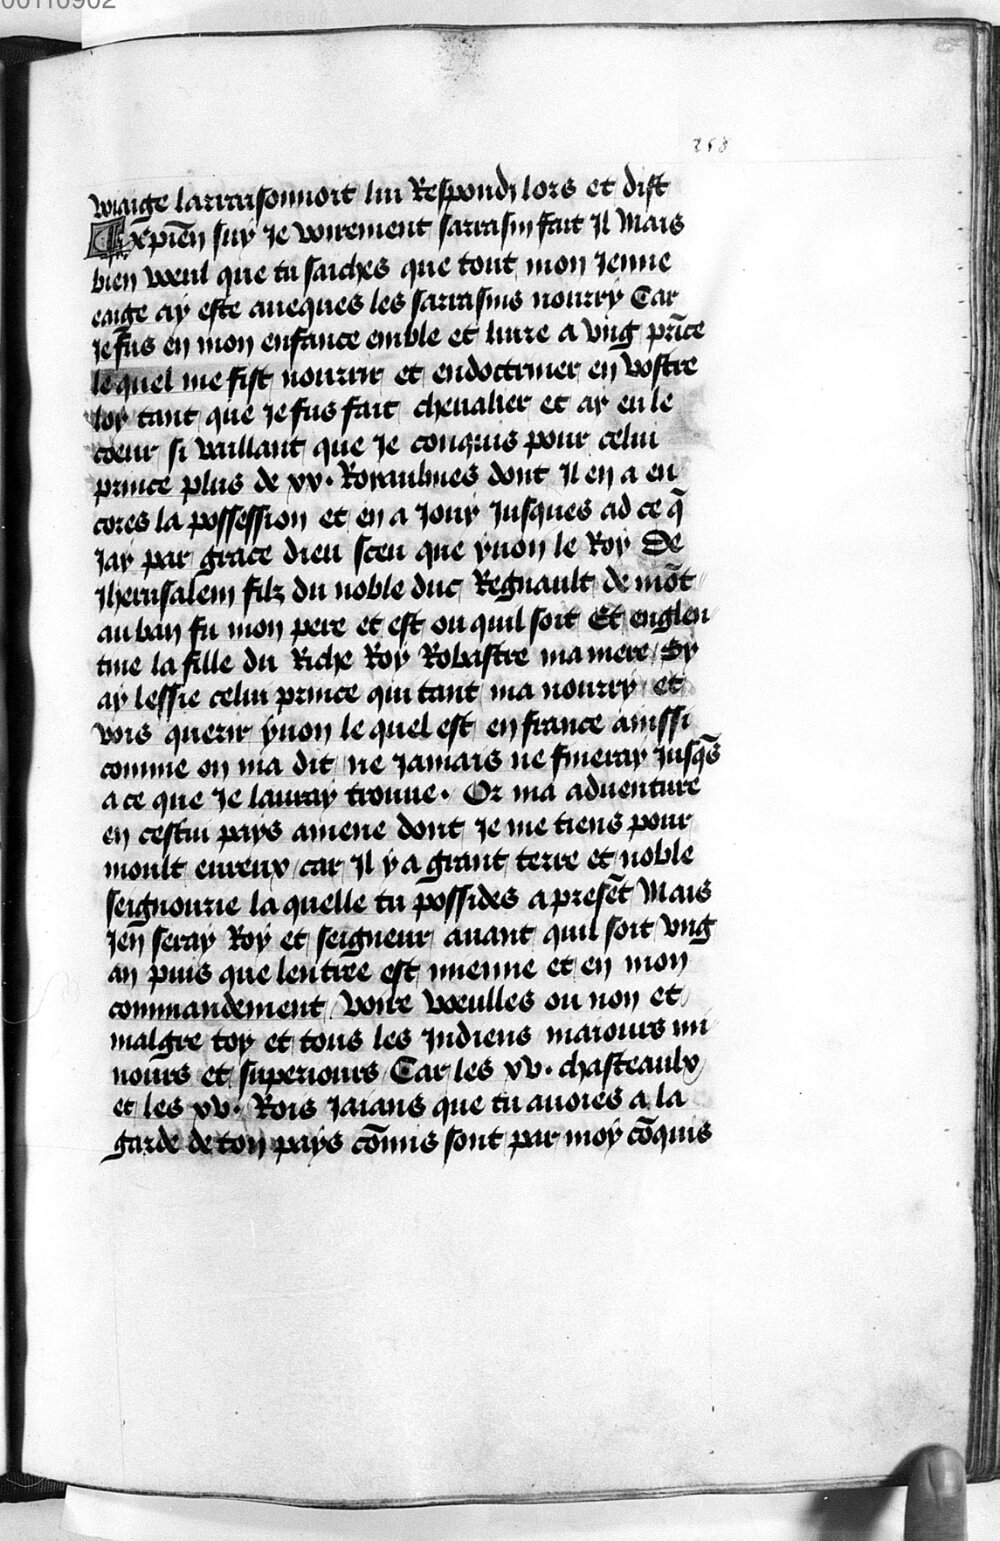 00110902
258
wiaige larraisonnoit lui Respondi lors et dist
xpien suy Je voirement sarrasin fait Il Mais
bien veul que tu saiches que tout mon Jenne
eaige ay este aueques les sarrasins nourry Car
Je fus en mon enfance emble et liure a vng prīce
lequel me fist nourrir et endoctriner en vostre
loy tant que Je fus fait cheualier et ay eu le
coeur si vaillant que Je conquis pour celui
prince plus de xv. Royaulmes dont Il en a en
cores la possession et en a Jouy Jusques ad ce q̄
Jay par grace dieu sceu que yuon le Roy De
Jherusalem filz du noble duc Regnault de mōt
auban fu mon pere et est ou quil soit Et englen
tine la fille du Riche Roy Robastre ma mere / Sy
ay lessie celui prince qui tant ma nourry et
vois querir yuon le quel est en france ainssi
comme on ma dit ne Jamais ne fineray Jusq̄s
a ce que Je lauray trouue. Or ma aduenture
en cestui pays amene dont Je me tiens pour
moult eureux car Il y a grant terre et noble
seignourie la quelle tu possides a presēt Mais
Jen seray Roy et seigneur auant quil soit vng
an puis que lentree est mienne et en mon
commandement / Voire voeulles ou non et
malgre toy et tous les Jndiens maiours mi
nours et superiours Car les xv. chasteaulx
et les xv. Rois Jaians que tu auoies a la
garde de ton pays cōmis sont par moy cōquis